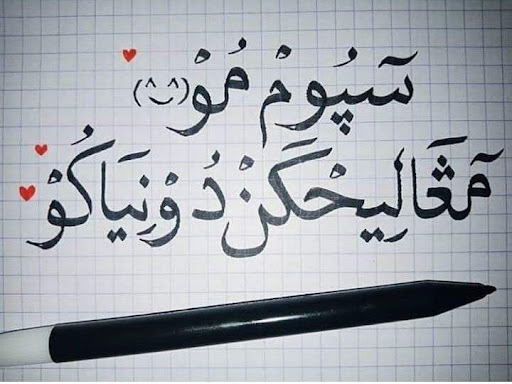 سٓپُومْ مُوْ (^‿^)
مٓڠَالِيحْكَنْ دُوْنِيَاكُوْ